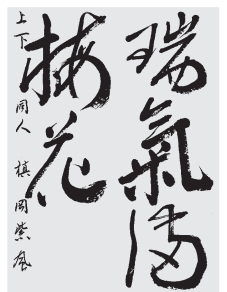 瑞氣満
梅花
上下 同人 槙岡紫風